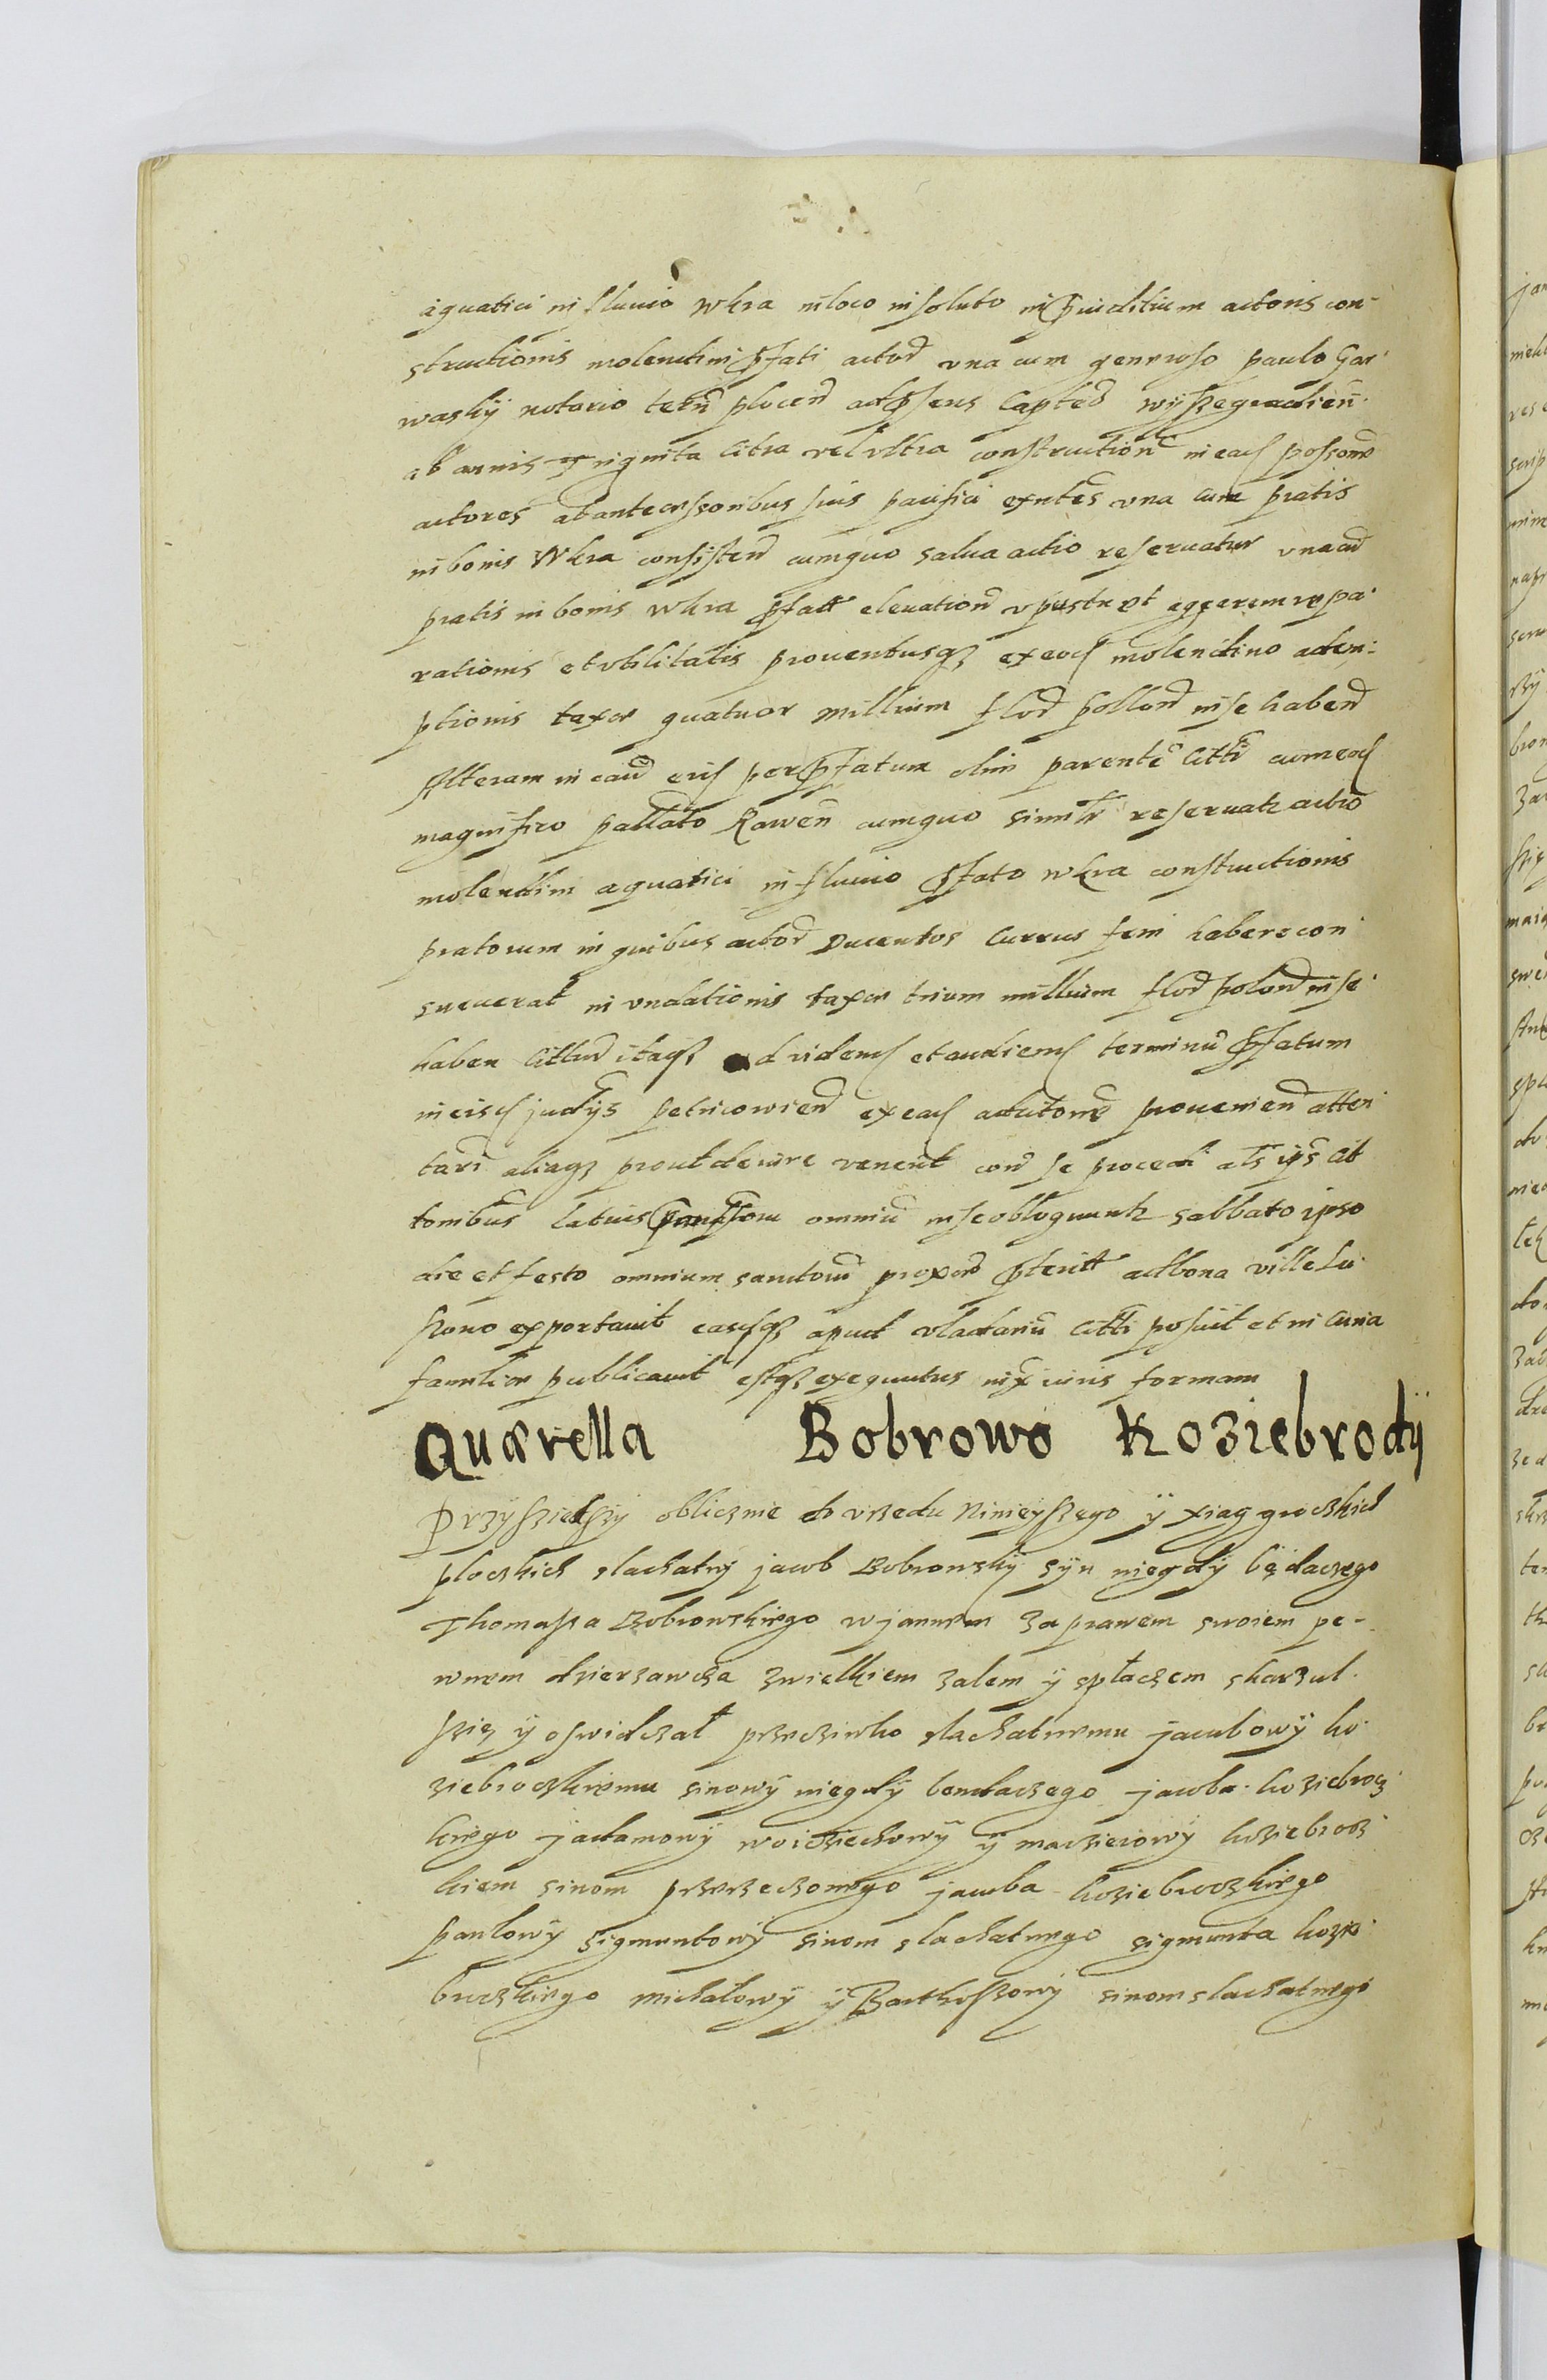 aquatici in fluuio Wkra in loco insoluto in p̄iuditium actoris con-
structionis molendini p̄fati actor̄ vna cum generoso paulo Gar-
wasky notario terrn̄ plocen̄ ad p̄sens Capted wyszegradien̄
ab annis Triginta citra vel vltra construction̄ in eadꝭ possone
actores ab antecessoribus suis pacifici exn̄tes vna cum pratis
in bonis Wkra consisten̄ cumquo salua actio reseruatur vnacū
pratis in bonis wkra p̄fatt eleuation̄ aggerem repa-
rationis et vtilitatis prouentusqꝫ ex eodꝭ molendino adem-
ptionis taxor quatuor millium flor̄ pollon̄ in se haben̄
Alteram in ead̄ perp̄fatum olim parentē citti cum eodꝭ
magnifico pallato Rawen̄ cumquo similr̄ reseruatr actio
molendini aquatici in fluuio p̄fato wkra constructionis
pratorum in quibus actor̄ Ducentos Currus feni habere con
sueuerat in vndationis taxor trium millium flor̄ polon̄ in se
haben cittur̄ itaqꝫ ad videndꝭ et audiendꝭ terminū p̄fatum
in eisdꝭ judijs petricowien̄ ex eadꝭ actitone prouenien̄ atten
tari aliaqꝫ prout de iure venerit con̄ se procedi als ips cit
tonibus latius omniū in se obloquuntr sabbato ipso
die et festo omnium sanctorū proxor̄ p̄terit ad bona ville Lu
kono exportauit easdꝭqꝫ apud vladariū citti posuit et in curia
familior publicauit estqꝫ exequutus iuxͣ iuris formam
Quærella Bobrowo Koziebrodÿ
Przysziedszÿ obliczme do vrzedu Ninieyszego ÿ xiag grodzkich
ploczkich slachatnÿ jacob Bobrowskÿ sÿn niegdÿ będaczego
Thomassa Bobrowskiego w jannem za prawem swoiem pe-
wnem dzierzawcza zwielkiem zalem ÿ spłaczem skarzul
szię ÿ oswidczał przeczinko slachatnemu jacubowÿ ko-
ziebroczkiemu sinowÿ niegdÿ bendaczego jacuba koziebrocz
kiego jadamowÿ woiczechowÿ ÿ macziezowÿ koziebrocz
kiem sinom przerzeczonego jacuba koziebroczkiego
pawłowÿ sigmuntowÿ sinom slachatnego sigmunta kozie
broczkiego michałowÿ ÿ Barthoszowÿ sinom slachatnego